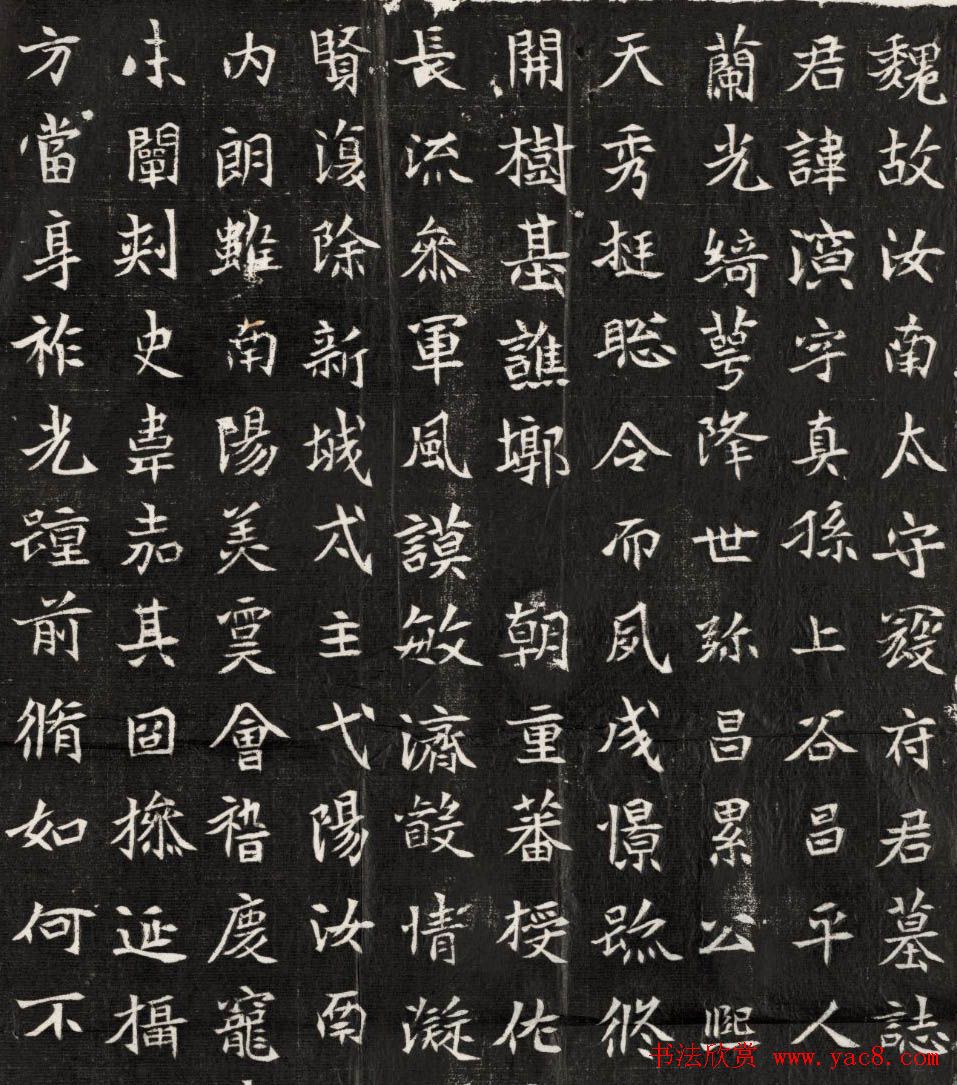 魏故汝南太守寇府君墓誌
君諱演字真孫上谷昌平人
蘭光綺萼降世弥昌累公熙
天秀挺聡令而夙成憬踰修
開樹基譙墎 朝重蕃授佐
長流叅軍風謨敏濟毅情凝
賢復除新城弍主弋陽汝南
内朗雖南陽美虞會稽慶寵
未闡刾史嘉其固操延攝
方當享祚光踵前脩如何不
书法欣赏 www.yac8.com